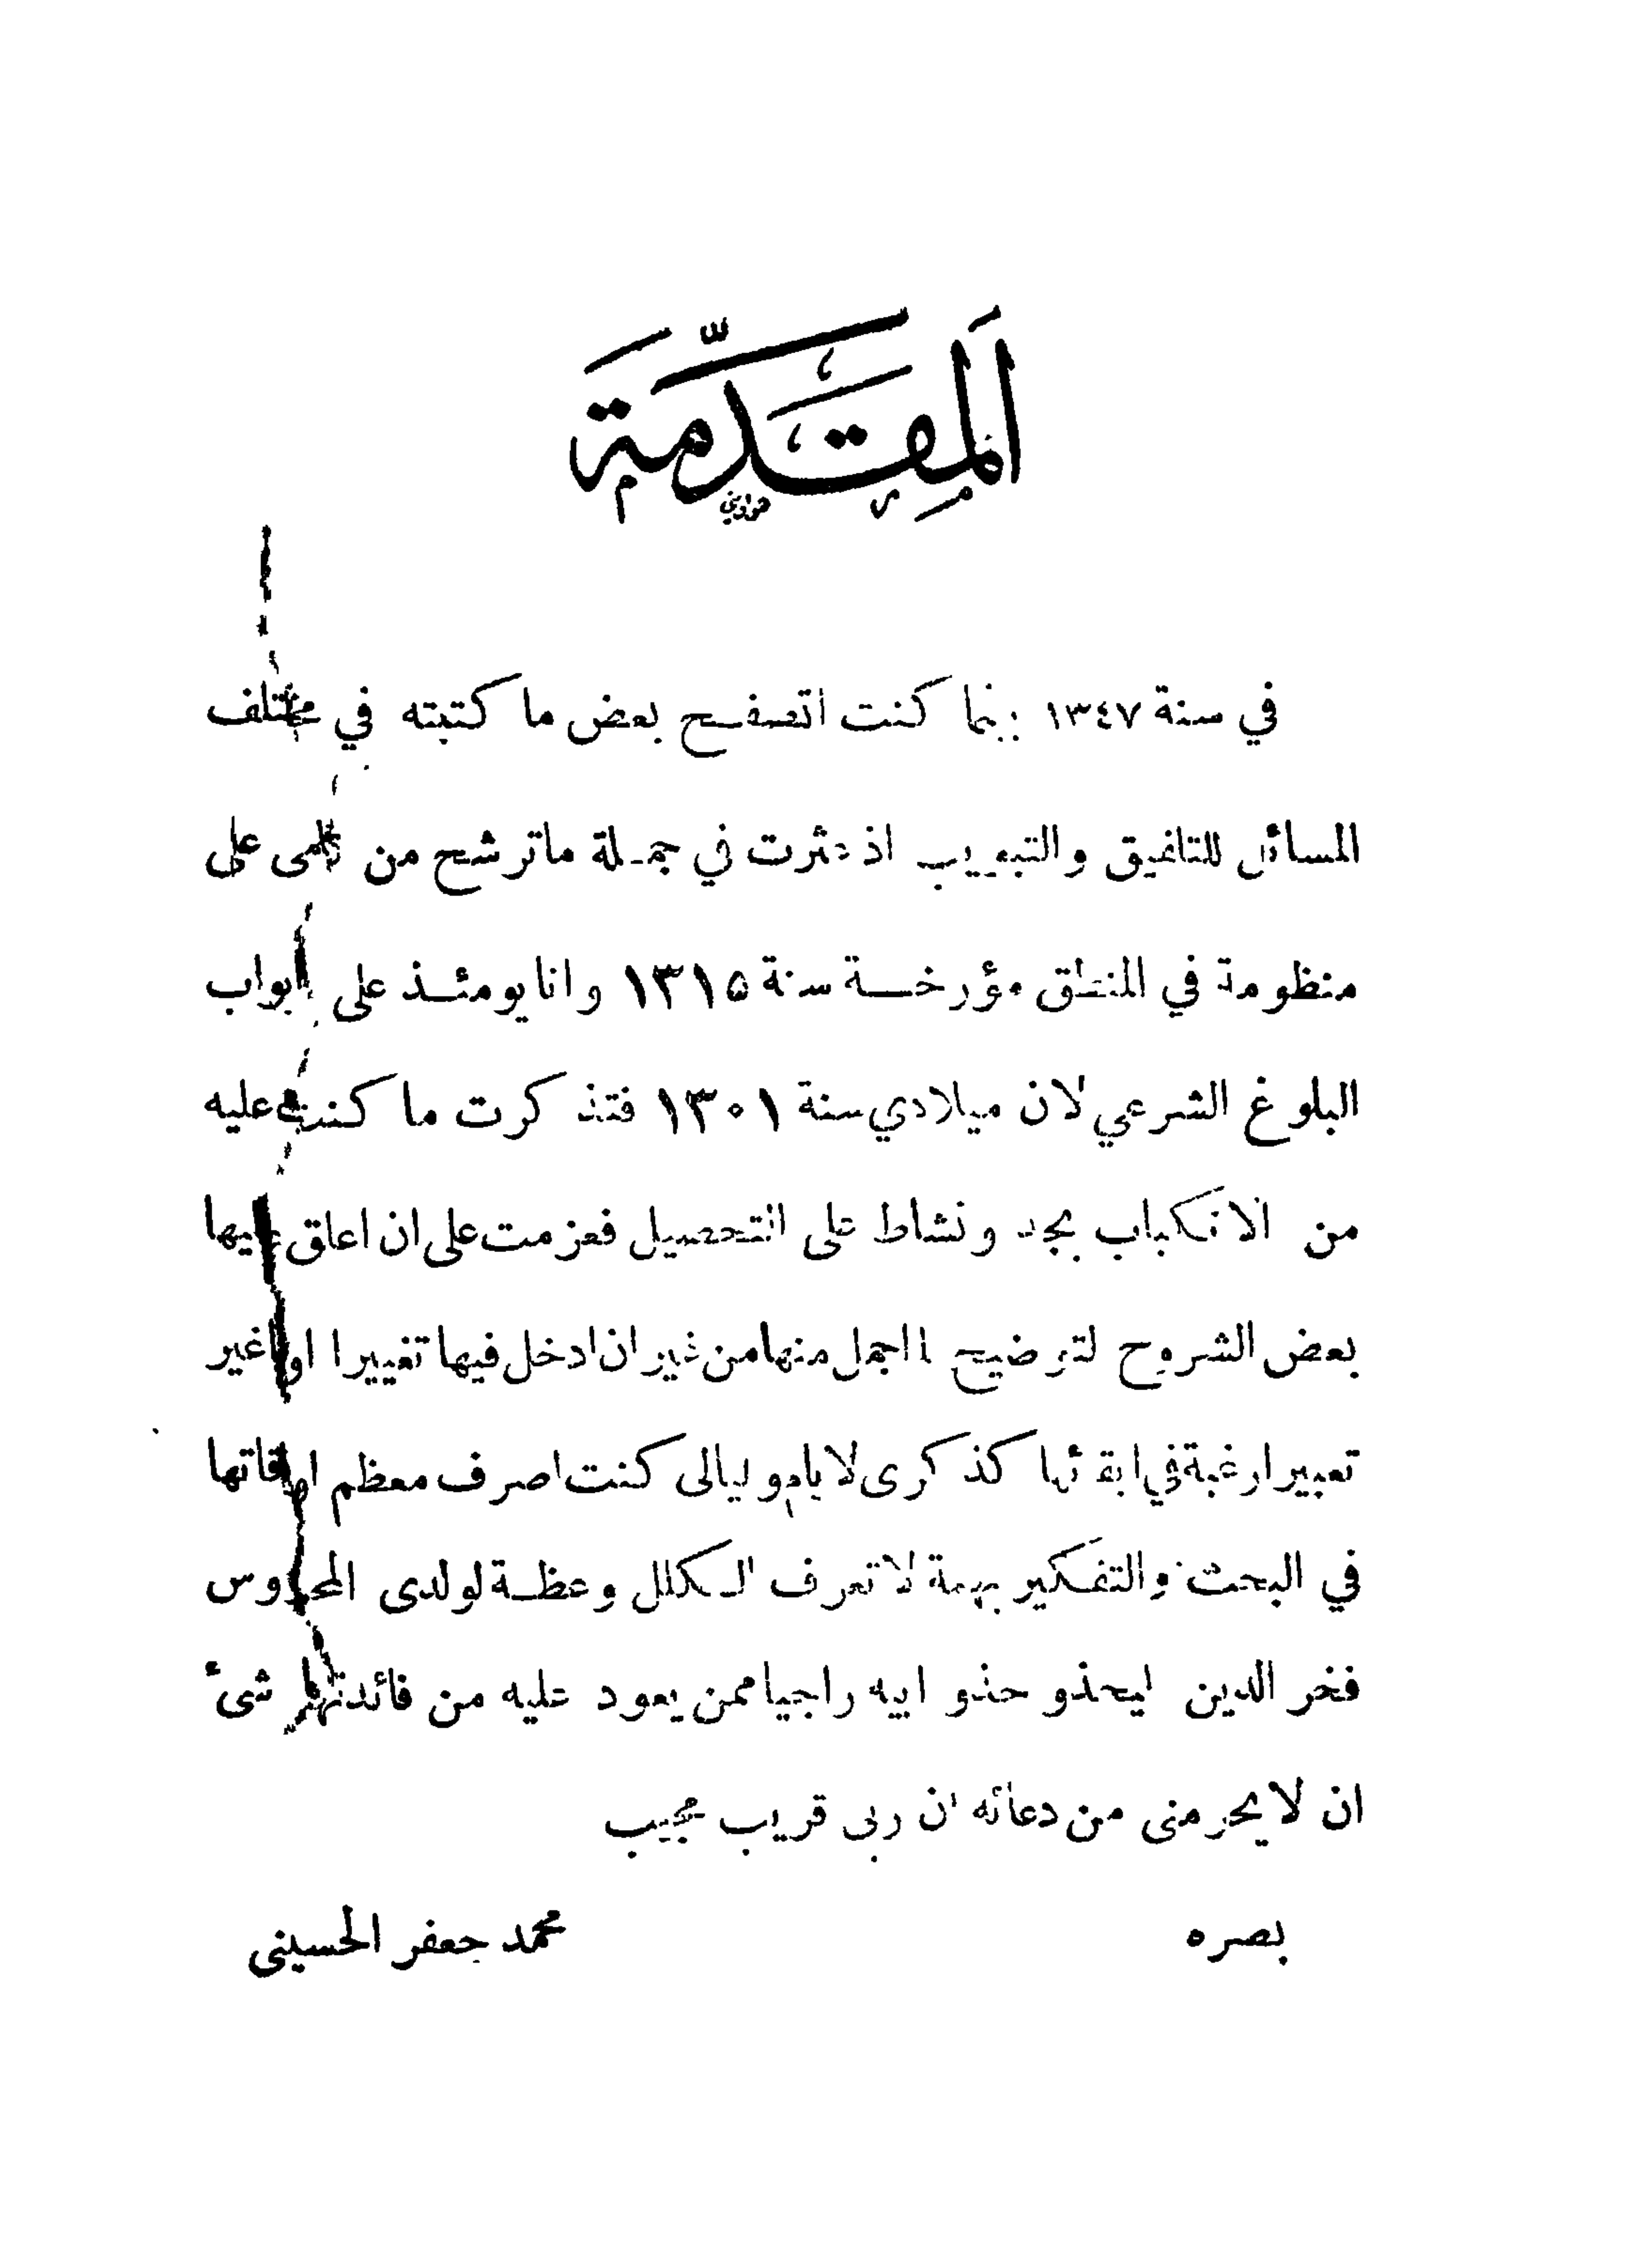 اَلمِقَدَّمَة
في سنة ١٣٤٧ بينما كنت اتصفح بعض ما كتبته في مختلف
المسائل للتلفيق والتبويب اذ عثرت في جملة ماترشح من قلمى على
منظومة في المنطق مؤرخة سنة ١٣١٥ وانا يومئذ على ابواب
البلوغ الشرعي لان ميلادي سنة ١٣٠١ فتذكرت ما كنت عليه
من الانكباب بجد ونشاط على التحصيل فعزمت على ان اعلق عليها
بعض الشروح لتوضيح ما اجمل منها من غير ان ادخل فيها تغييرا او اغير
تعبيرا رغبة في ابقائها كذكرى لايام وليالى كنت اصرف معظم اوقاتها
في البحث والتفكير بهمة لا تعرف الكلل وعظة لولدى المحروس
فخر الدين ليحذو حذو ابيه راجيا ممن يعود عليه من فائدتها شئ
ان لا يحرمنى من دعائه ان ربى قريب مجيب
بصره محمد جعفر الحسينى